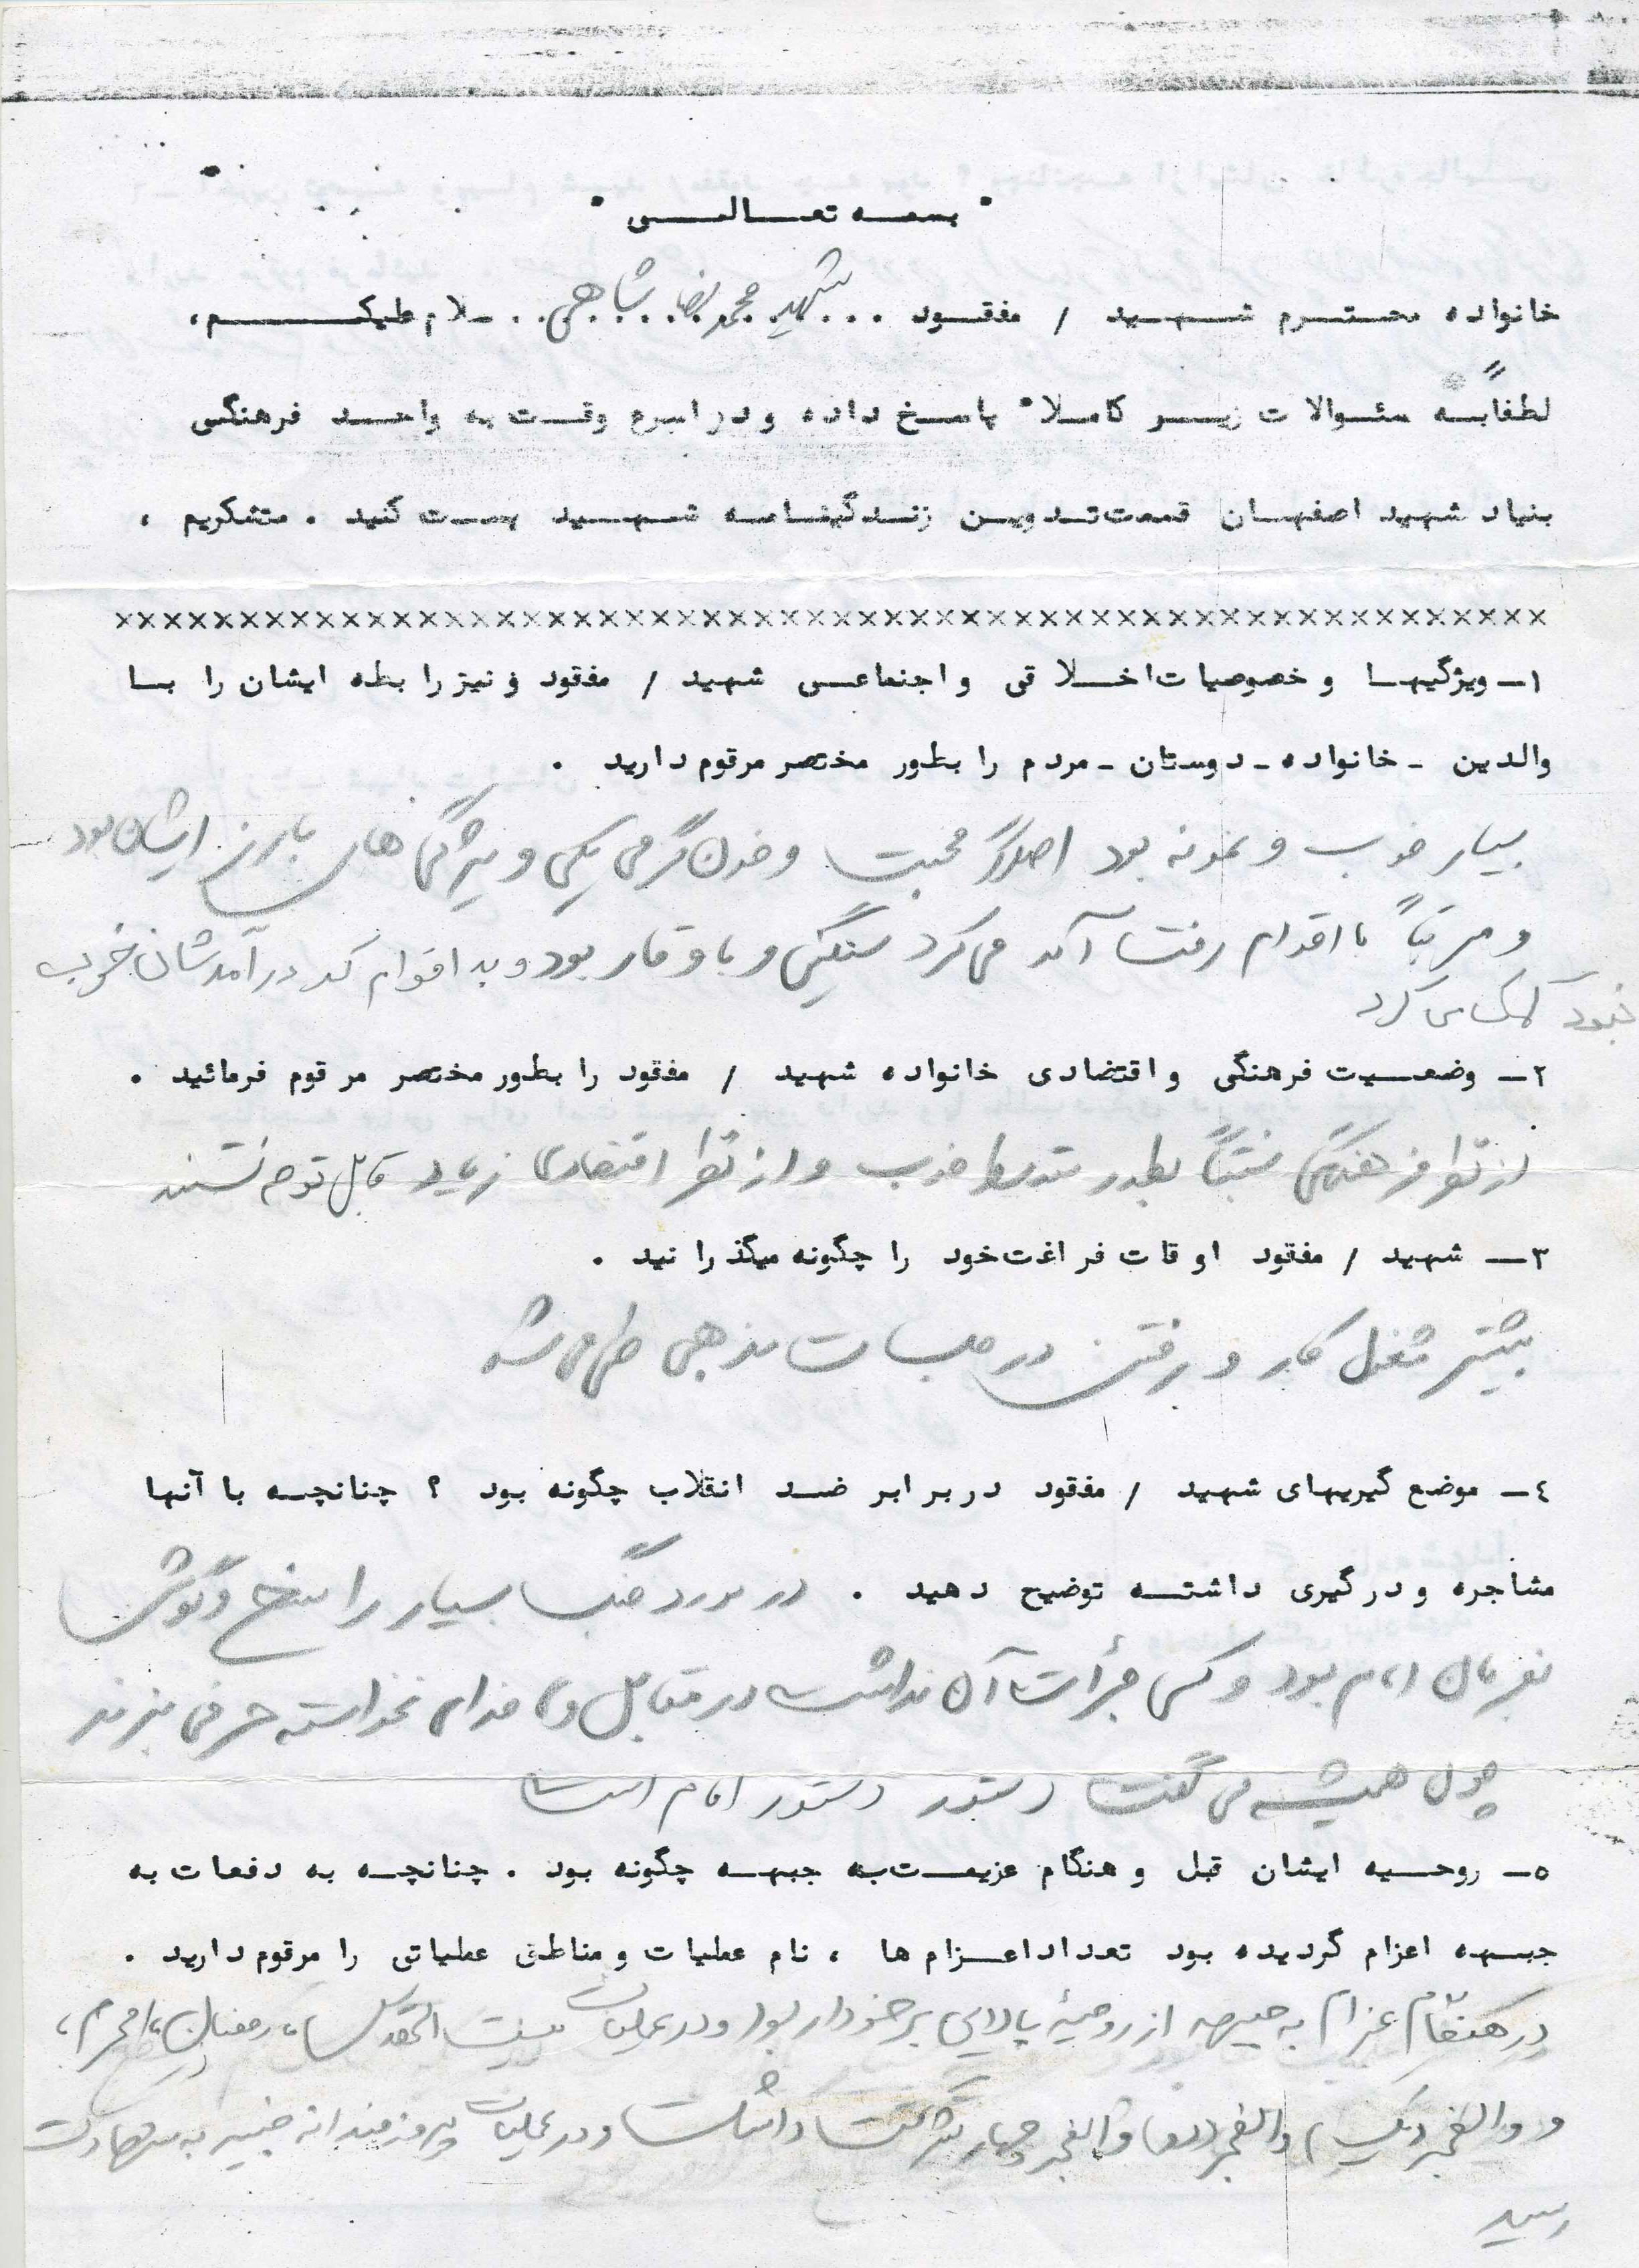 " بسمه تعالی "
خانواده محترم شهید / مفقود ... شهید محمدرضا شاهی ... سلام علیکم،
لطفاً به سئوالات زیر کاملا" پاسخ داده و در اسرع وقت به واحد فرهنگی
بنیاد شهید اصفهان قسمت تدوین زندگینامه شهید پست کنید . متشکریم ،
××××××××××××××××××××××××××××××××××××××××××××××××××××××××
۱ـ ویژگیها و خصوصیات اخلاقی و اجتماعی شهید / مفقود و نیز رابطه ایشان را با
والدین ـ خانواده ـ دوستان ـ مردم را بطور مختصر مرقوم دارید .
بسیار خوب و نمونه بود محبت و خون گرمی یکی ویژگی های بارز ایشان بود
و مرتباً با اقوام رفت آمد می کرد سنگین و با وقار بود و به اقوام که درآمدشان خوب
نبود کمک می کرد
۲ـ وضعیت فرهنگی و اقتضادی خانواده شهید / مفقود را بطور مختصر مرقوم فرمائید .
از نظر فرهنگی نسبتاً بطور متوسط خوب و از نظر اقتصادی زیاد قابل توجه نیستند
۳ـ شهید / مفقود اوقات فراغت خود را چگونه میگذرانید .
بیشتر مشغول کار و رفتن در جلسات مذهبی طی می شد
٤ـ موضع گیریهای شهید / مفقود در برابر ضد انقلاب چگونه بود ؟ چنانچه با آنها
مشاجره و درگیری داشته توضیح دهید . در مورد جنگ بسیار راسخ و گوش
بفرمان امام بود و کسی جرأت آن نداشت در مقابل وی خدای نخواسته حرفی بزند
چون همیشه می گفت دستور دستور امام است
٥ـ روحیه ایشان قبل و هنگام عزیمت به جبهه چگونه بود . چنانچه به دفعات به
جبهه اعزام گردیده بود تعداد اعزام ها ، نام عملیات و مناطق عملیاتی را مرقوم دارید .
در هنگام اعزام به جبهه از روحیهٔ بالایی برخوردار بود و در عملیات بیت المقدس ، رمضان ، محرم ،
و والفجر یک ، والفجر دو والفجر چهار شرکت داشت و در عملیات پیروزمندانه خیبر به شهادت
رسید